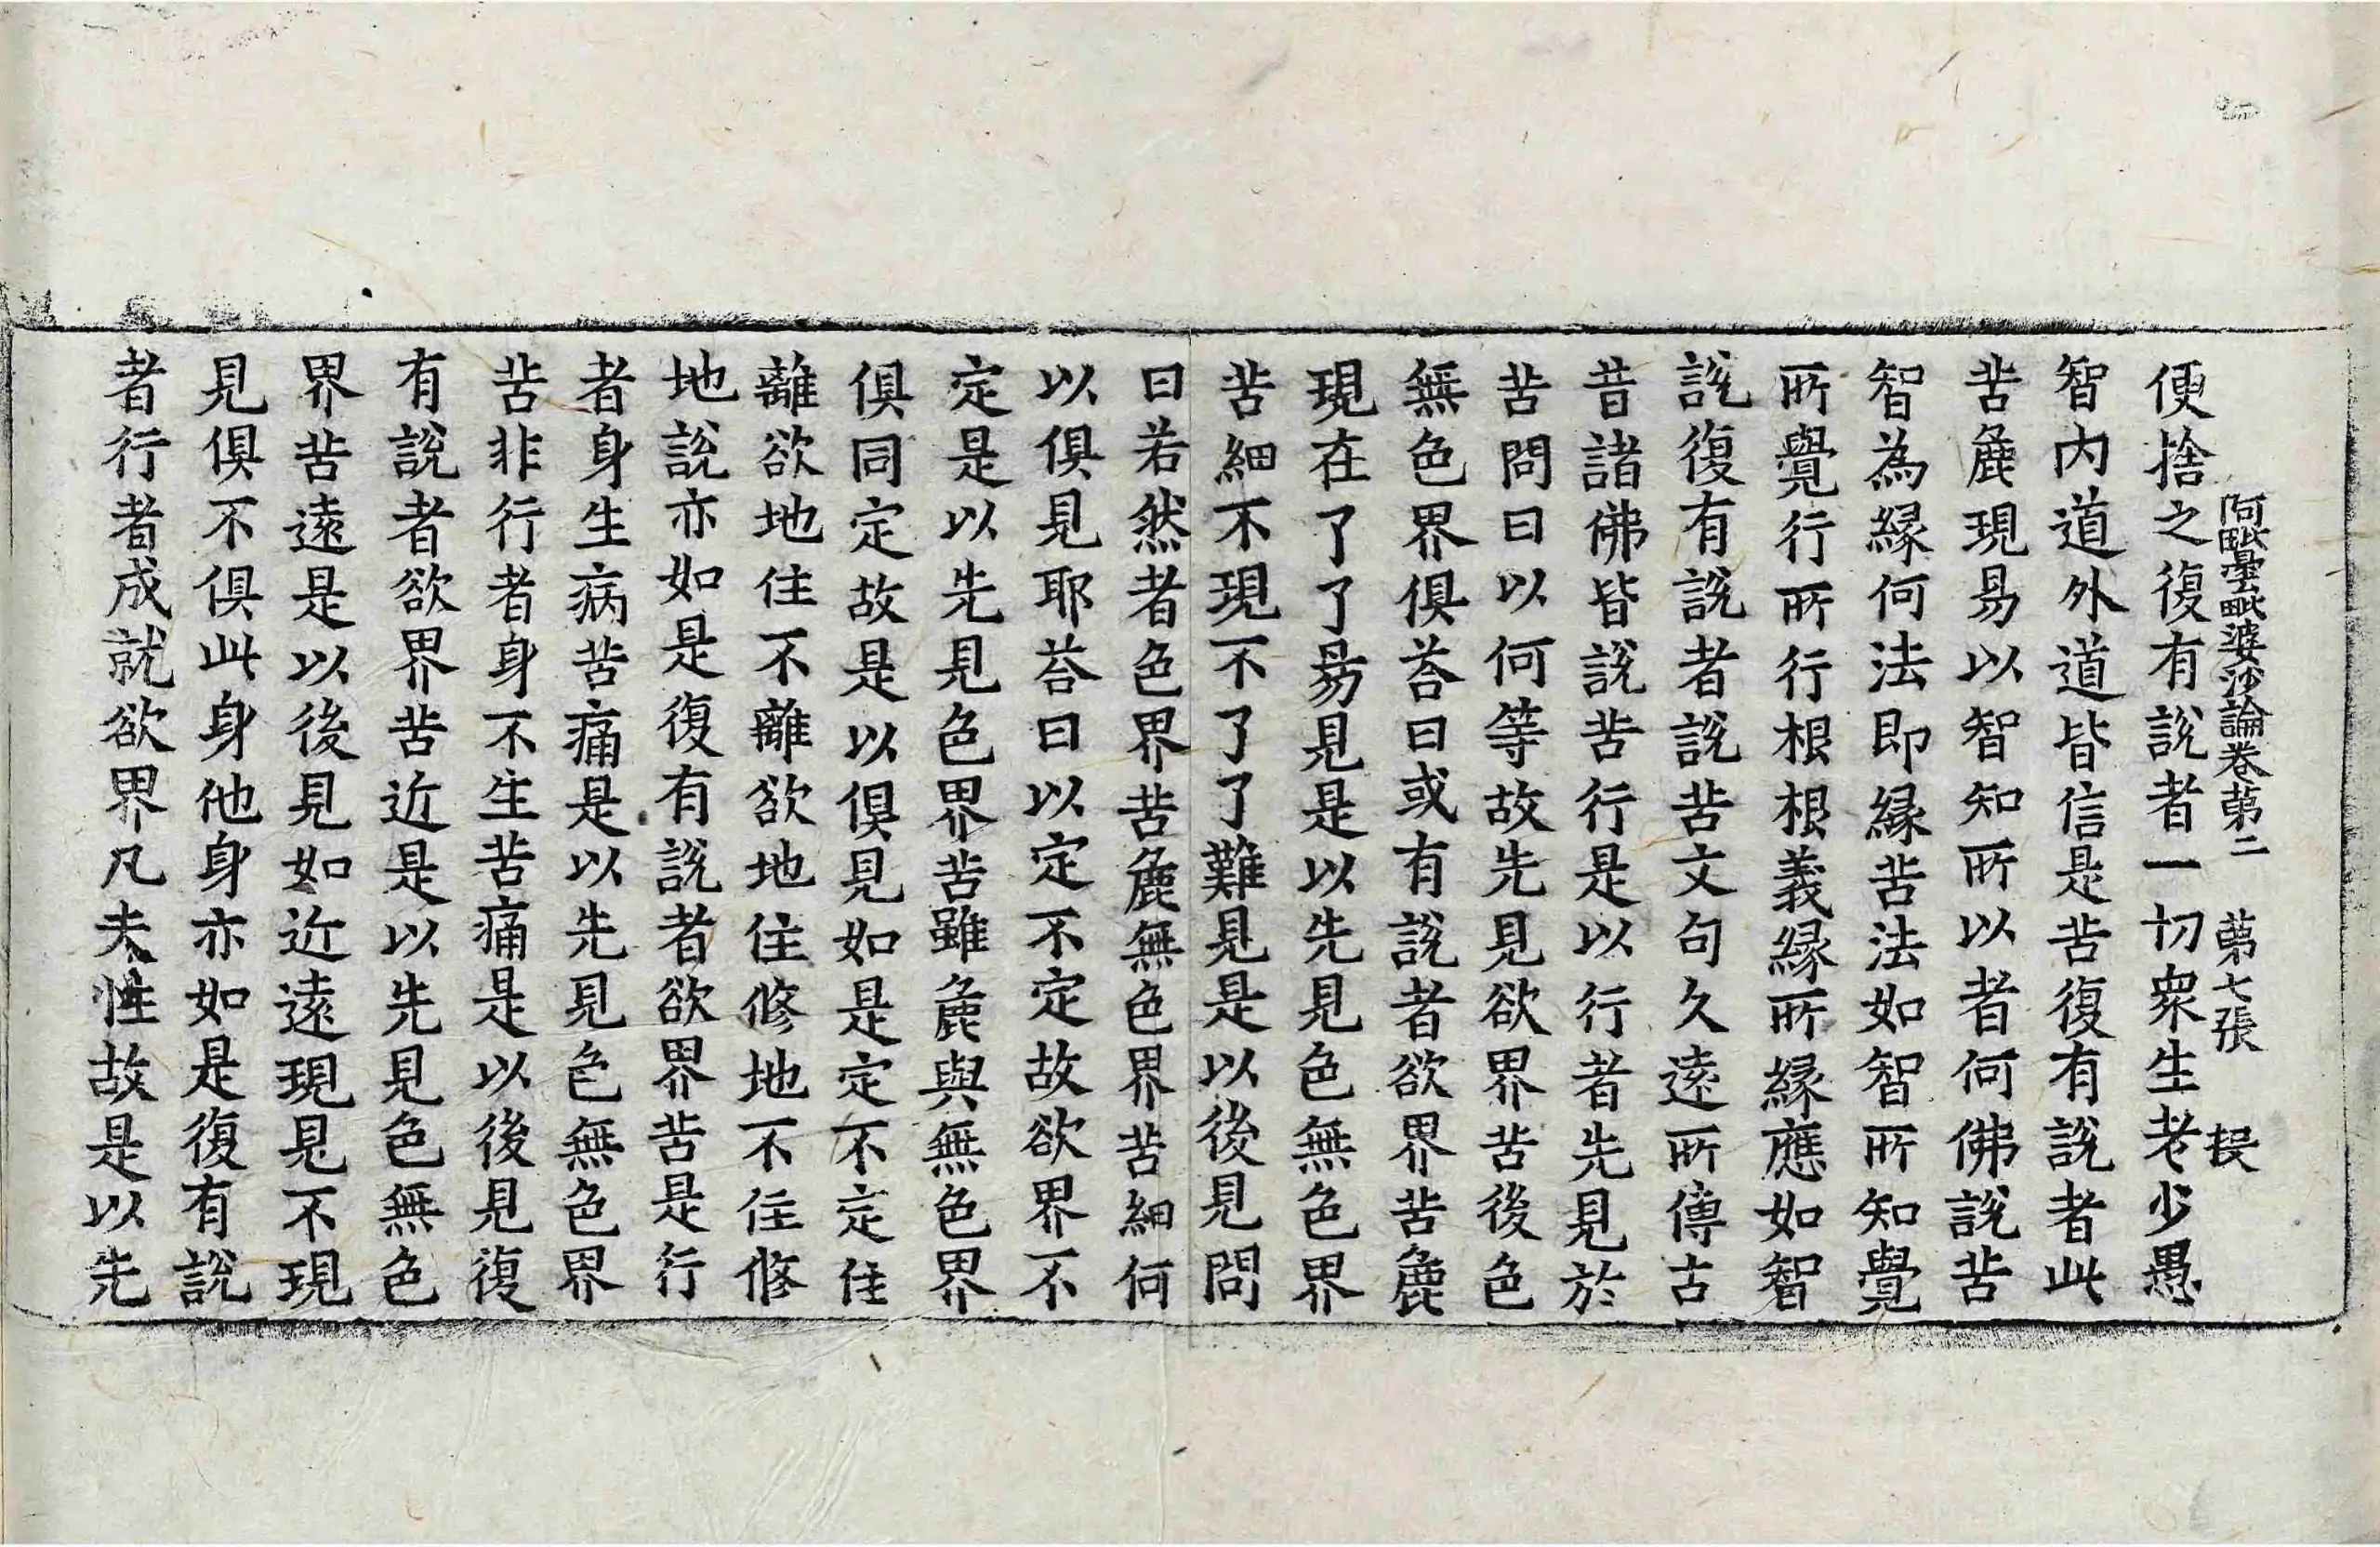 阿毗曇毗婆沙論卷第二　第七張　㧞
便捨之復有說者一切眾生老少愚
智内道外道皆信是苦復有說者此
苦麁現易以智知所以者何佛說苦
智為縁何法即縁苦法如智所知覺
所覺行所行根根義縁所縁應如智
說復有說者說苦文句久遠所傳古
昔諸佛皆說苦行是以行者先見於
苦問曰以何等故先見欲界苦後色
無色界俱荅曰或有說者欲界苦麁
現在了了易見是以先見色無色界
苦細不現不了了難見是以後見問
曰若然者色界苦麁無色界苦細何
以俱見耶荅曰以定不定故欲界不
定是以先見色界苦雖麁與無色界
俱同定故是以俱見如是定不定住
離欲地住不離欲地住修地不住修
地說亦如是復有說者欲界苦是行
者身生病苦痛是以先見色無色界
苦非行者身不生苦痛是以後見復
有說者欲界苦近是以先見色無色
界苦遠是以後見如近遠現見不現
見俱不俱此身他身亦如是復有說
者行者成就欲界凡夫性故是以先